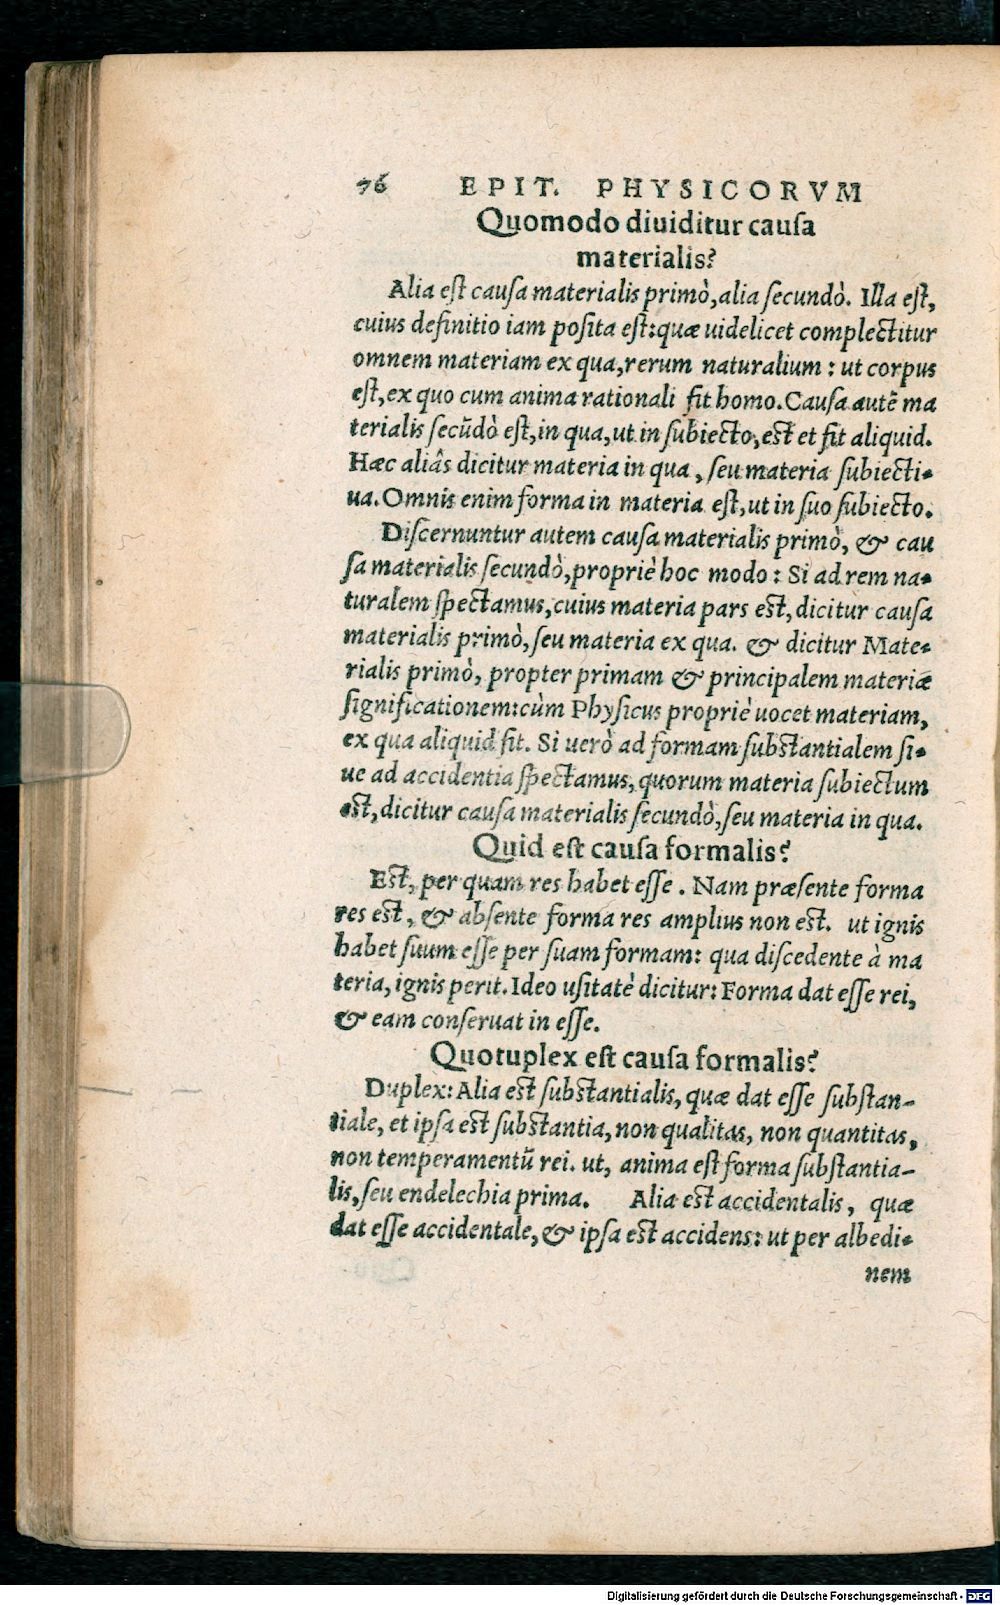 76 EPIT. PHYSICORVM
Quomodo diuiditur cauſa
materialis?
Alia eſt cauſa materialis primò, alia ſecundò. Illa eſt,
cuius definitio iam poſita eſt: quæ uidelicet complectitur
omnem materiam ex qua, rerum naturalium: ut corpus
eſt, ex quo cum anima rationali fit homo. Cauſa autẽ ma
terialis ſecũdò eſt, in qua, ut in ſubiecto, eſt et fit aliquid.
Hæc aliâs dicitur materia in qua, ſeu materia ſubiecti-
ua. Omnis enim forma in materia eſt, ut in ſuo ſubiecto.
Diſcernuntur autem cauſa materialis primò, & cau
ſa materialis ſecundò, propriè hoc modo: Si ad rem na-
turalem ſpectamus, cuius materia pars eſt, dicitur cauſa
materialis primò, ſeu materia ex qua. & dicitur Mate-
rialis primò, propter primam & principalem materiæ
ſignificationem: cùm Phyſicus propriè uocet materiam,
ex qua aliquid fit. Si uerò ad formam ſubſtantialem ſi-
ue ad accidentia ſpectamus, quorum materia ſubiectum
eſt, dicitur cauſa materialis ſecundò, ſeu materia in qua.
Quid eſt cauſa formalis?
Eſt, per quam res habet eſſe. Nam præſente forma
res eſt, & abſente forma res amplius non eſt. ut ignis
habet ſuum eſſe per ſuam formam: qua diſcedente à ma
teria, ignis perit. Ideo uſitatè dicitur: Forma dat eſſe rei,
& eam conſeruat in eſſe.
Quotuplex eſt cauſa formalis?
Duplex: Alia eſt ſubſtantialis, quæ dat eſſe ſubſtan-
tiale, et ipſa eſt ſubſtantia, non qualitas, non quantitas,
non temperamentũ rei. ut, anima eſt forma ſubſtantia-
lis, ſeu endelechia prima. Alia eſt accidentalis, quæ
dat eſſe accidentale, & ipſa eſt accidens: ut per albedi-
nem
Digitalisierung gefördert durch die Deutsche Forschungsgemeinschaft - DFG